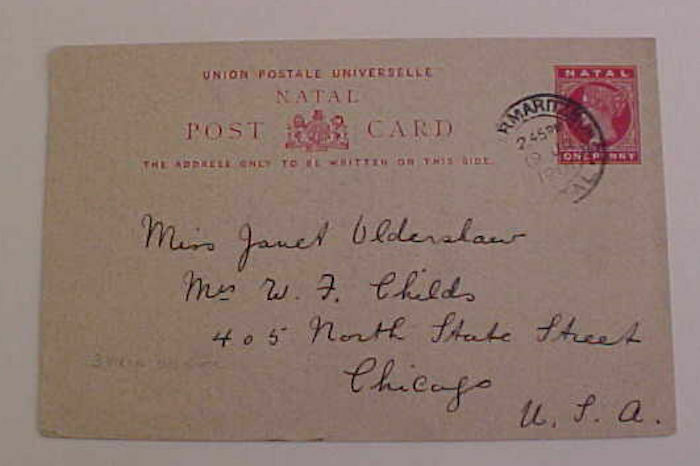 UNION POSTALE UNIVERSELLE
NATAL
POST CARD
THE ADDRESS ONLY TO BE WRITTEN ON THIS SIDE.
NATAL
ONE PENNY
2 45 PM
Miss Janet Olderslaw
Mrs W. F. Childs
405 North State Street
Chicago
U. S. A.